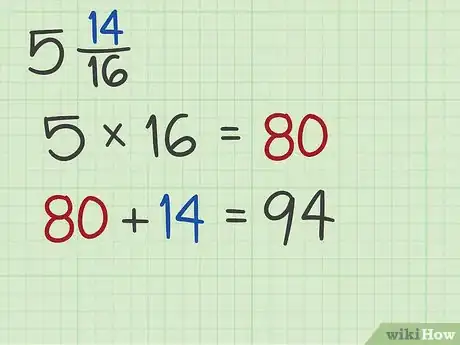 5 14/16
5 × 16 = 80
80 + 14 = 94
wikiHow